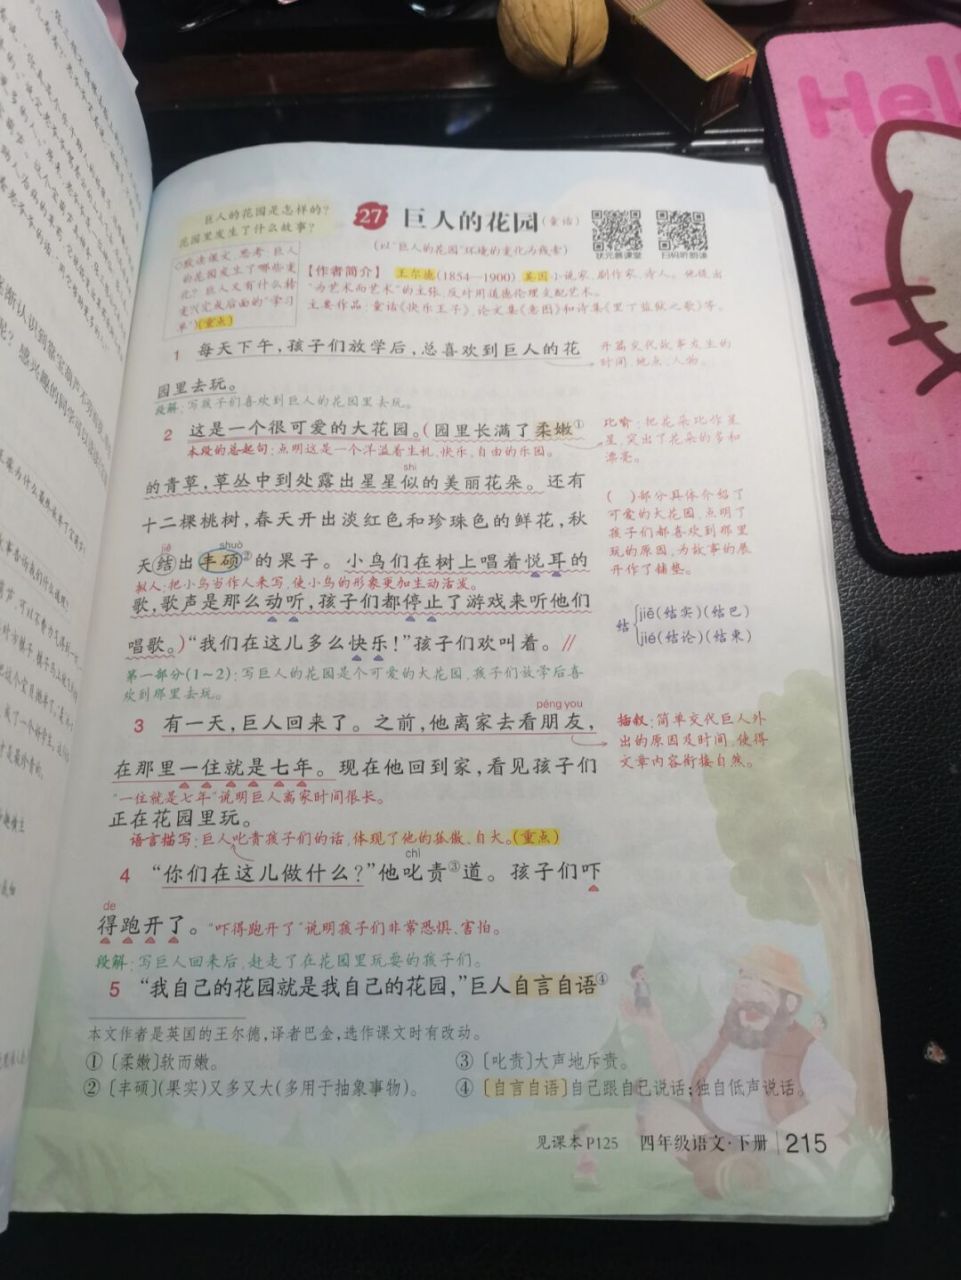 Hell
巨人的花园是怎样的?
花园里发生了什么故事?
27 巨人的花园(童话)
状元慕课堂 扫码听朗读
(以“巨人的花园”环境的变化为线索)
默读课文,思考:巨人
的花园发生了哪些变
化?巨人又有什么转
变?(完成后面的“学习
单”)(重点)
【作者简介】 王尔德(1854—1900) 英国小说家、剧作家、诗人。他提出
“为艺术而艺术”的主张,反对用道德伦理支配艺术。
主要作品:童话《快乐王子》、论文集《意图》和诗集《里丁监狱之歌》等。
1 每天下午,孩子们放学后,总喜欢到巨人的花
园里去玩。
开篇交代故事发生的
时间、地点、人物。
段解:写孩子们喜欢到巨人的花园里去玩。
2 这是一个很可爱的大花园。(园里长满了柔嫩①
本段的总起句:点明这是一个洋溢着生机、快乐、自由的乐园。
比喻:把花朵比作星
星,突出了花朵的多和
漂亮。
shì
的青草,草丛中到处露出星星似的美丽花朵。还有
十二棵桃树,春天开出淡红色和珍珠色的鲜花,秋
jiē shuò
天结出丰硕②的果子。小鸟们在树上唱着悦耳的
拟人:把小鸟当作人来写,使小鸟的形象更加生动活泼。
歌,歌声是那么动听,孩子们都停止了游戏来听他们
唱歌。)“我们在这儿多么快乐!”孩子们欢叫着。//
( )部分具体介绍了
可爱的大花园,点明了
孩子们都喜欢到那里
玩的原因,为故事的展
开作了铺垫。
结 jiē(结实)(结巴)
jié(结论)(结束)
第一部分(1~2):写巨人的花园是个可爱的大花园,孩子们放学后喜
欢到那里去玩。
péng you
3 有一天,巨人回来了。之前,他离家去看朋友,
在那里一住就是七年。现在他回到家,看见孩子们
“一住就是七年”说明巨人离家时间很长。
正在花园里玩。
插叙:简单交代巨人外
出的原因及时间,使得
文章内容衔接自然。
语言描写:巨人叱责孩子们的话,体现了他的孤傲、自大。(重点)
chì
4 “你们在这儿做什么?”他叱责③道。孩子们吓
de
得跑开了。“吓得跑开了”说明孩子们非常恐惧、害怕。
段解:写巨人回来后,赶走了在花园里玩耍的孩子们。
5 “我自己的花园就是我自己的花园,”巨人自言自语④
本文作者是英国的王尔德,译者巴金,选作课文时有改动。
①〔柔嫩〕软而嫩。
②〔丰硕〕(果实)又多又大(多用于抽象事物)。
③〔叱责〕大声地斥责。
④〔自言自语〕自己跟自己说话;独自低声说话。
见课本P125 四年级语文·下册 215